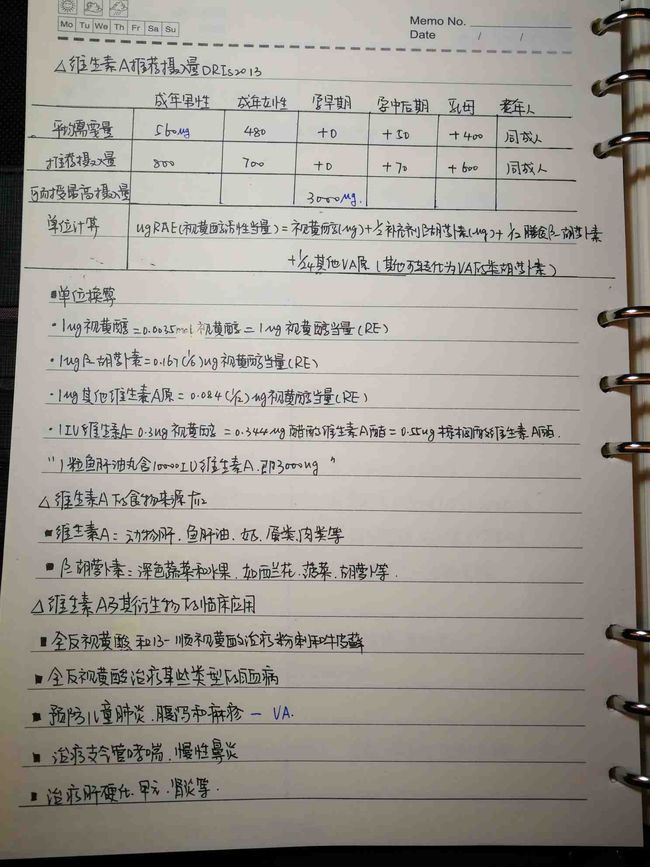 Memo No.
Mo Tu We Th Fr Sa Su
Date / /
△维生素A推荐摄入量DRIs2013
成年男性 成年女性 孕早期 孕中后期 乳母 老年人
平均需要量 560ug 480 +0 +50 +400 同成人
推荐摄入量 800 700 +0 +70 +600 同成人
可耐受最高摄入量 3000ug.
单位计算 ugRAE(视黄醇活性当量)=视黄醇(ug)+½补充剂β胡萝卜素(ug)+1/12膳食β-胡萝卜素
+1/24其他VA原(其他可转化为VA的类胡萝卜素)
■单位换算
·1ug视黄醇=0.0035mol视黄醇=1ug视黄醇当量(RE)
·1ugβ胡萝卜素=0.167(1/6)ug视黄醇当量(RE)
·1ug其他维生素A原=0.084(1/12)ug视黄醇当量(RE)
·1IU维生素A=0.3ug视黄醇=0.344ug醋酸维生素A酯=0.55ug棕榈酸维生素A酯.
"1粒鱼肝油丸含10000IU维生素A.即3000ug"
△维生素A的食物来源
■维生素A:动物肝.鱼肝油.奶.蛋类.肉类等
■β胡萝卜素:深色蔬菜和水果.如西兰花.菠菜.胡萝卜等.
△维生素A及其衍生物的临床应用
■全反视黄酸和13-顺视黄酸治疗粉刺和牛皮藓
■全反视黄酸治疗某些类型的白血病
■预防儿童肺炎.腹泻和麻疹—VA.
■治疗支气管哮喘.慢性鼻炎
■治疗肝硬化.甲亢.肾炎等.